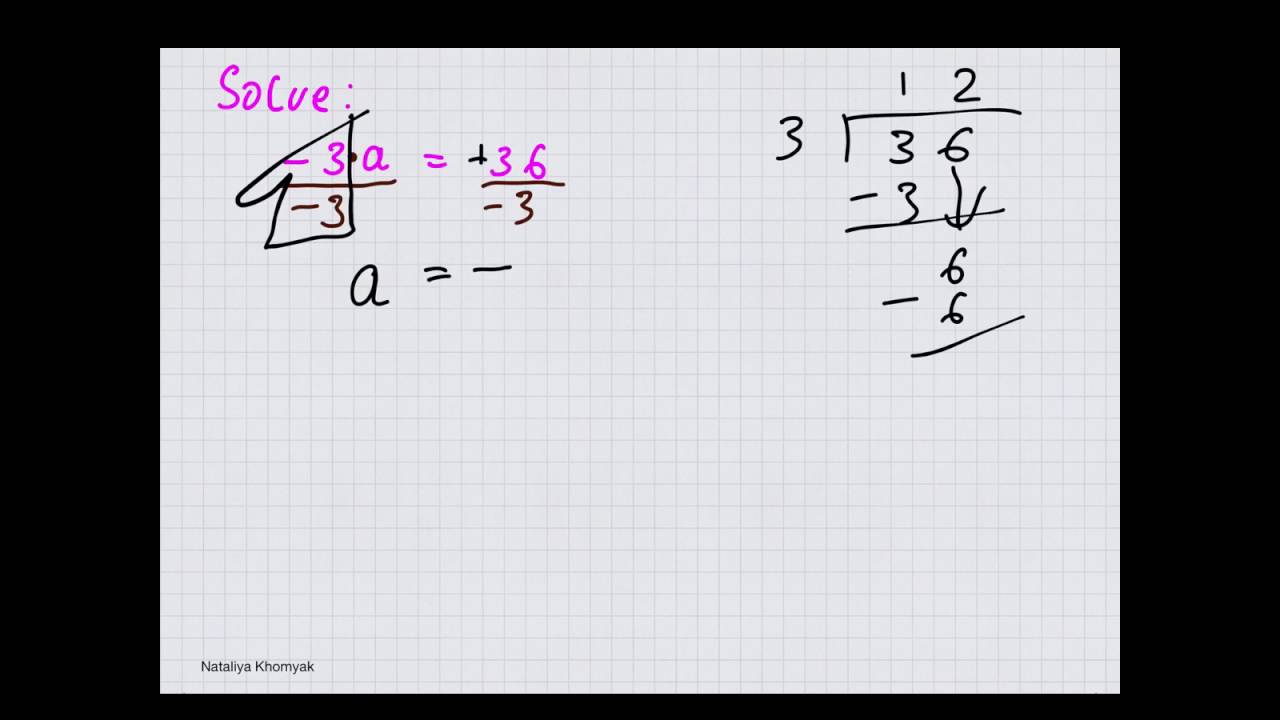 Solve:
-3·a = +36
-3 -3
a = -
1 2
3 36
-3
6
- 6
Nataliya Khomyak